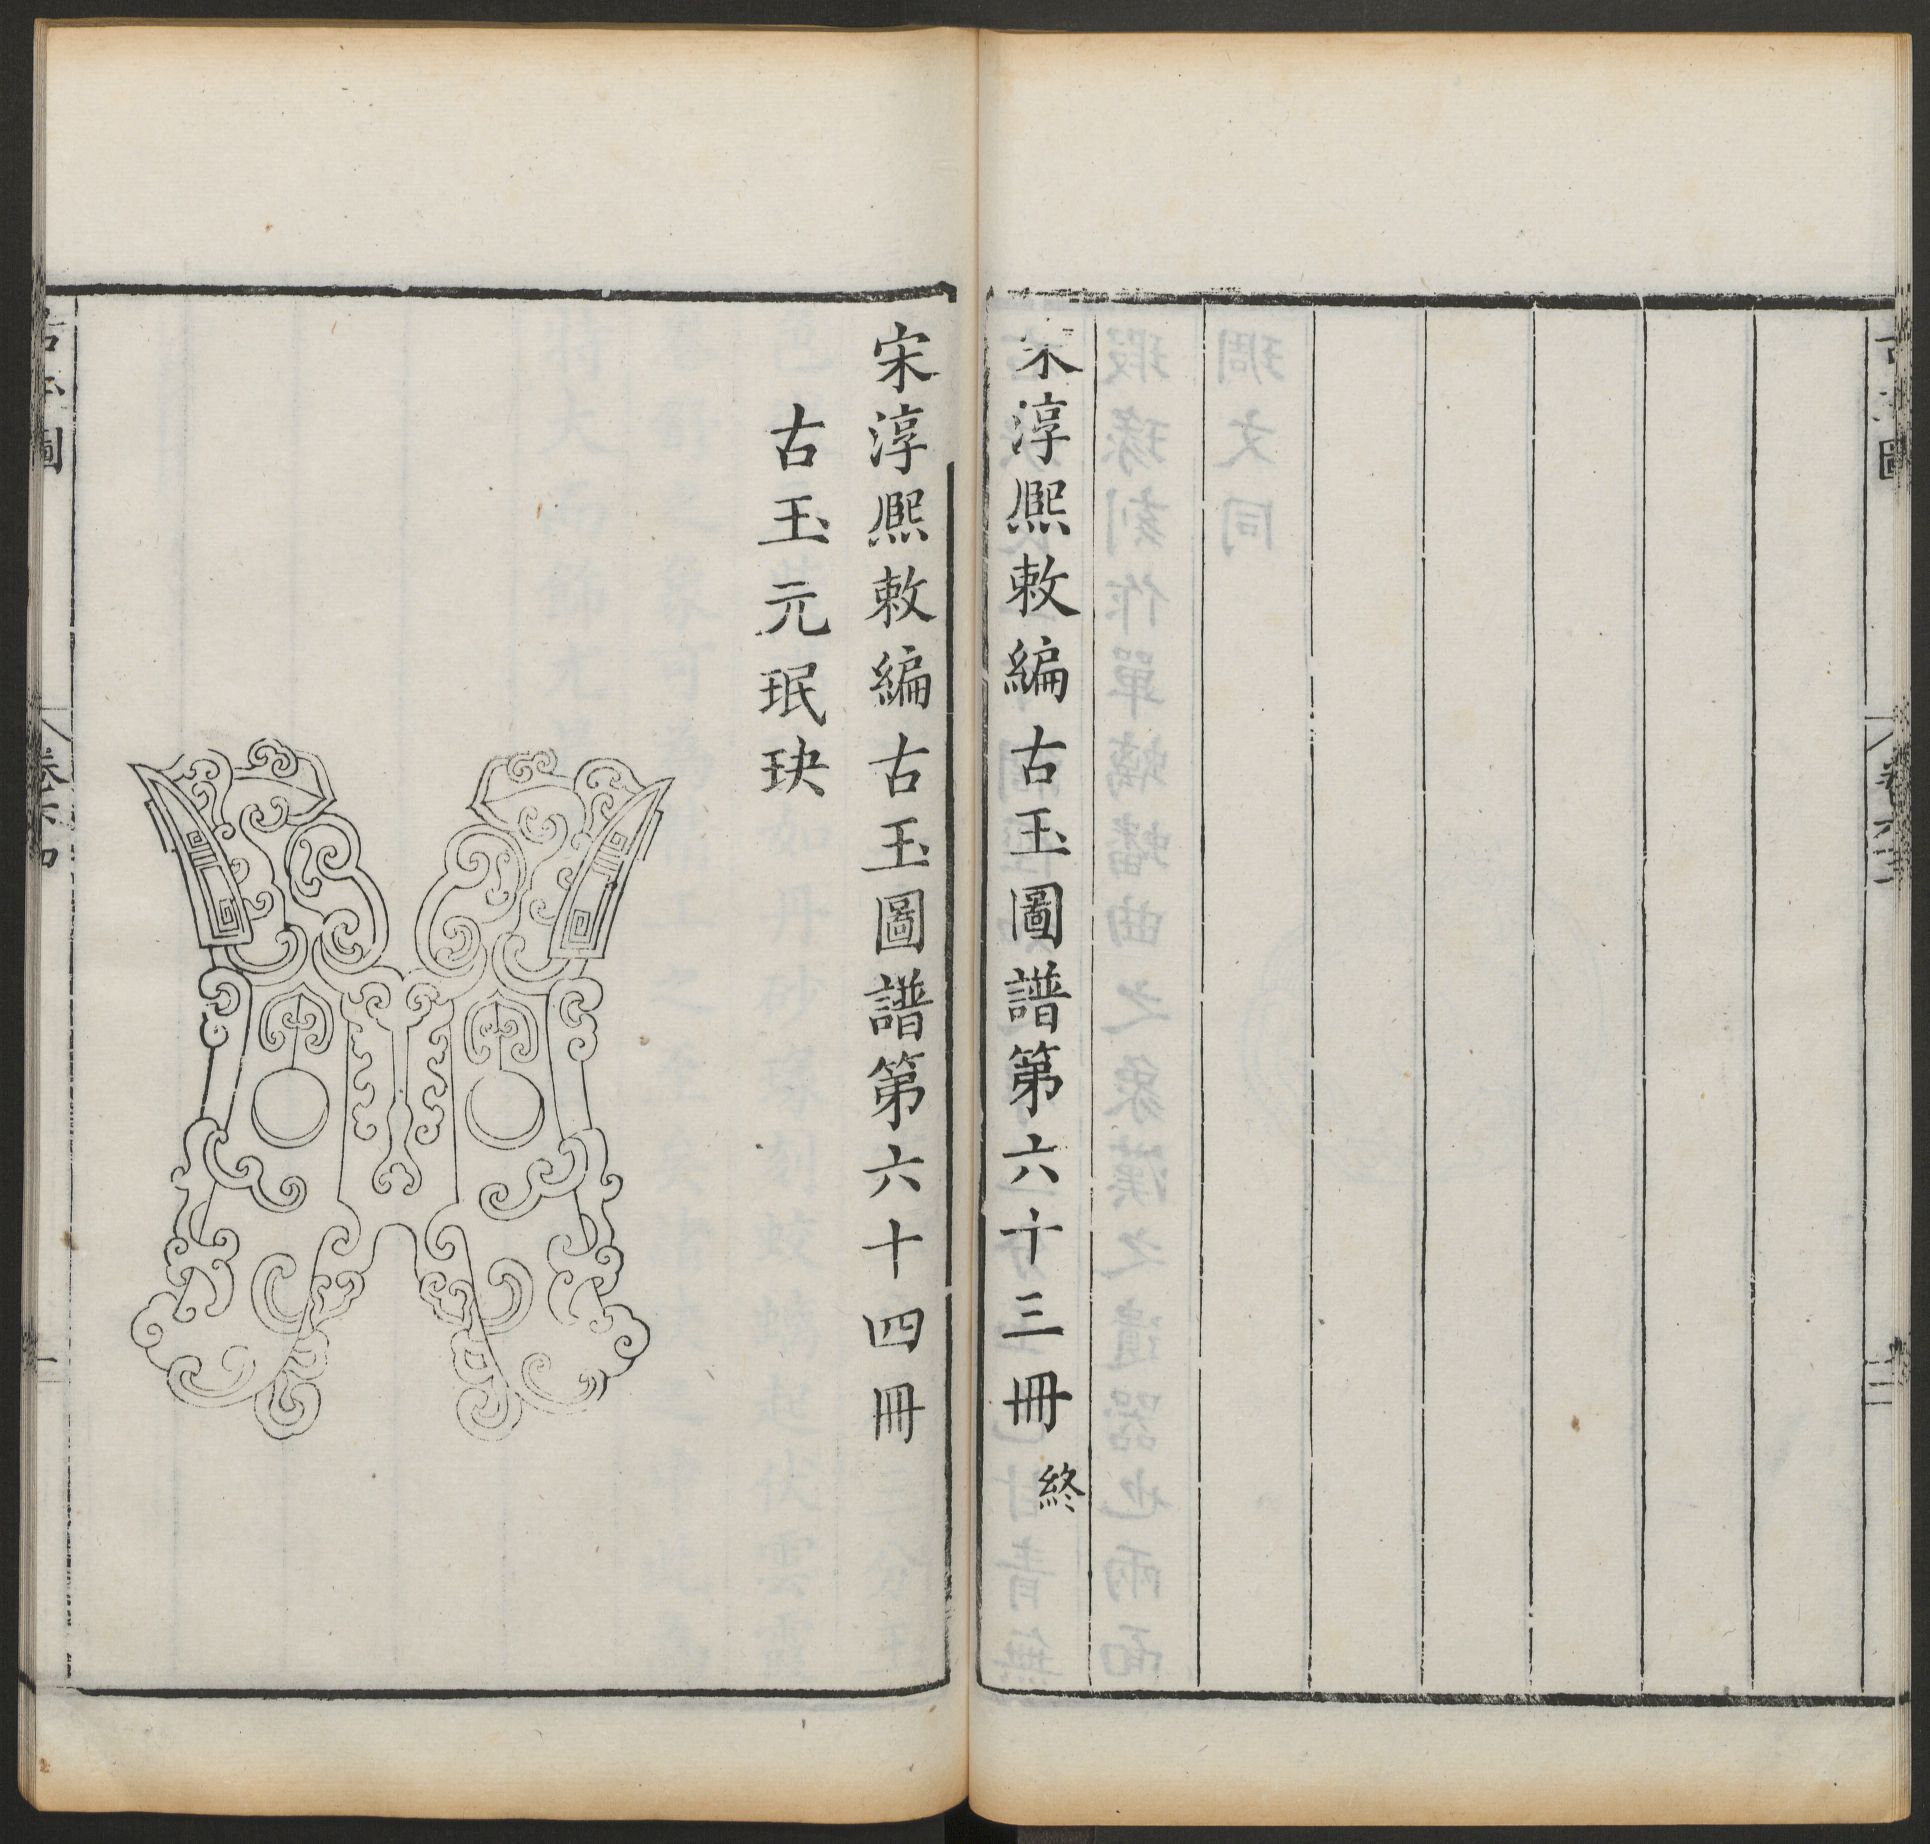 宋淳熙敕編古玉圖譜第六十三冊 終
宋淳熙敕編古玉圖譜第六十四冊
古玉元珉玦